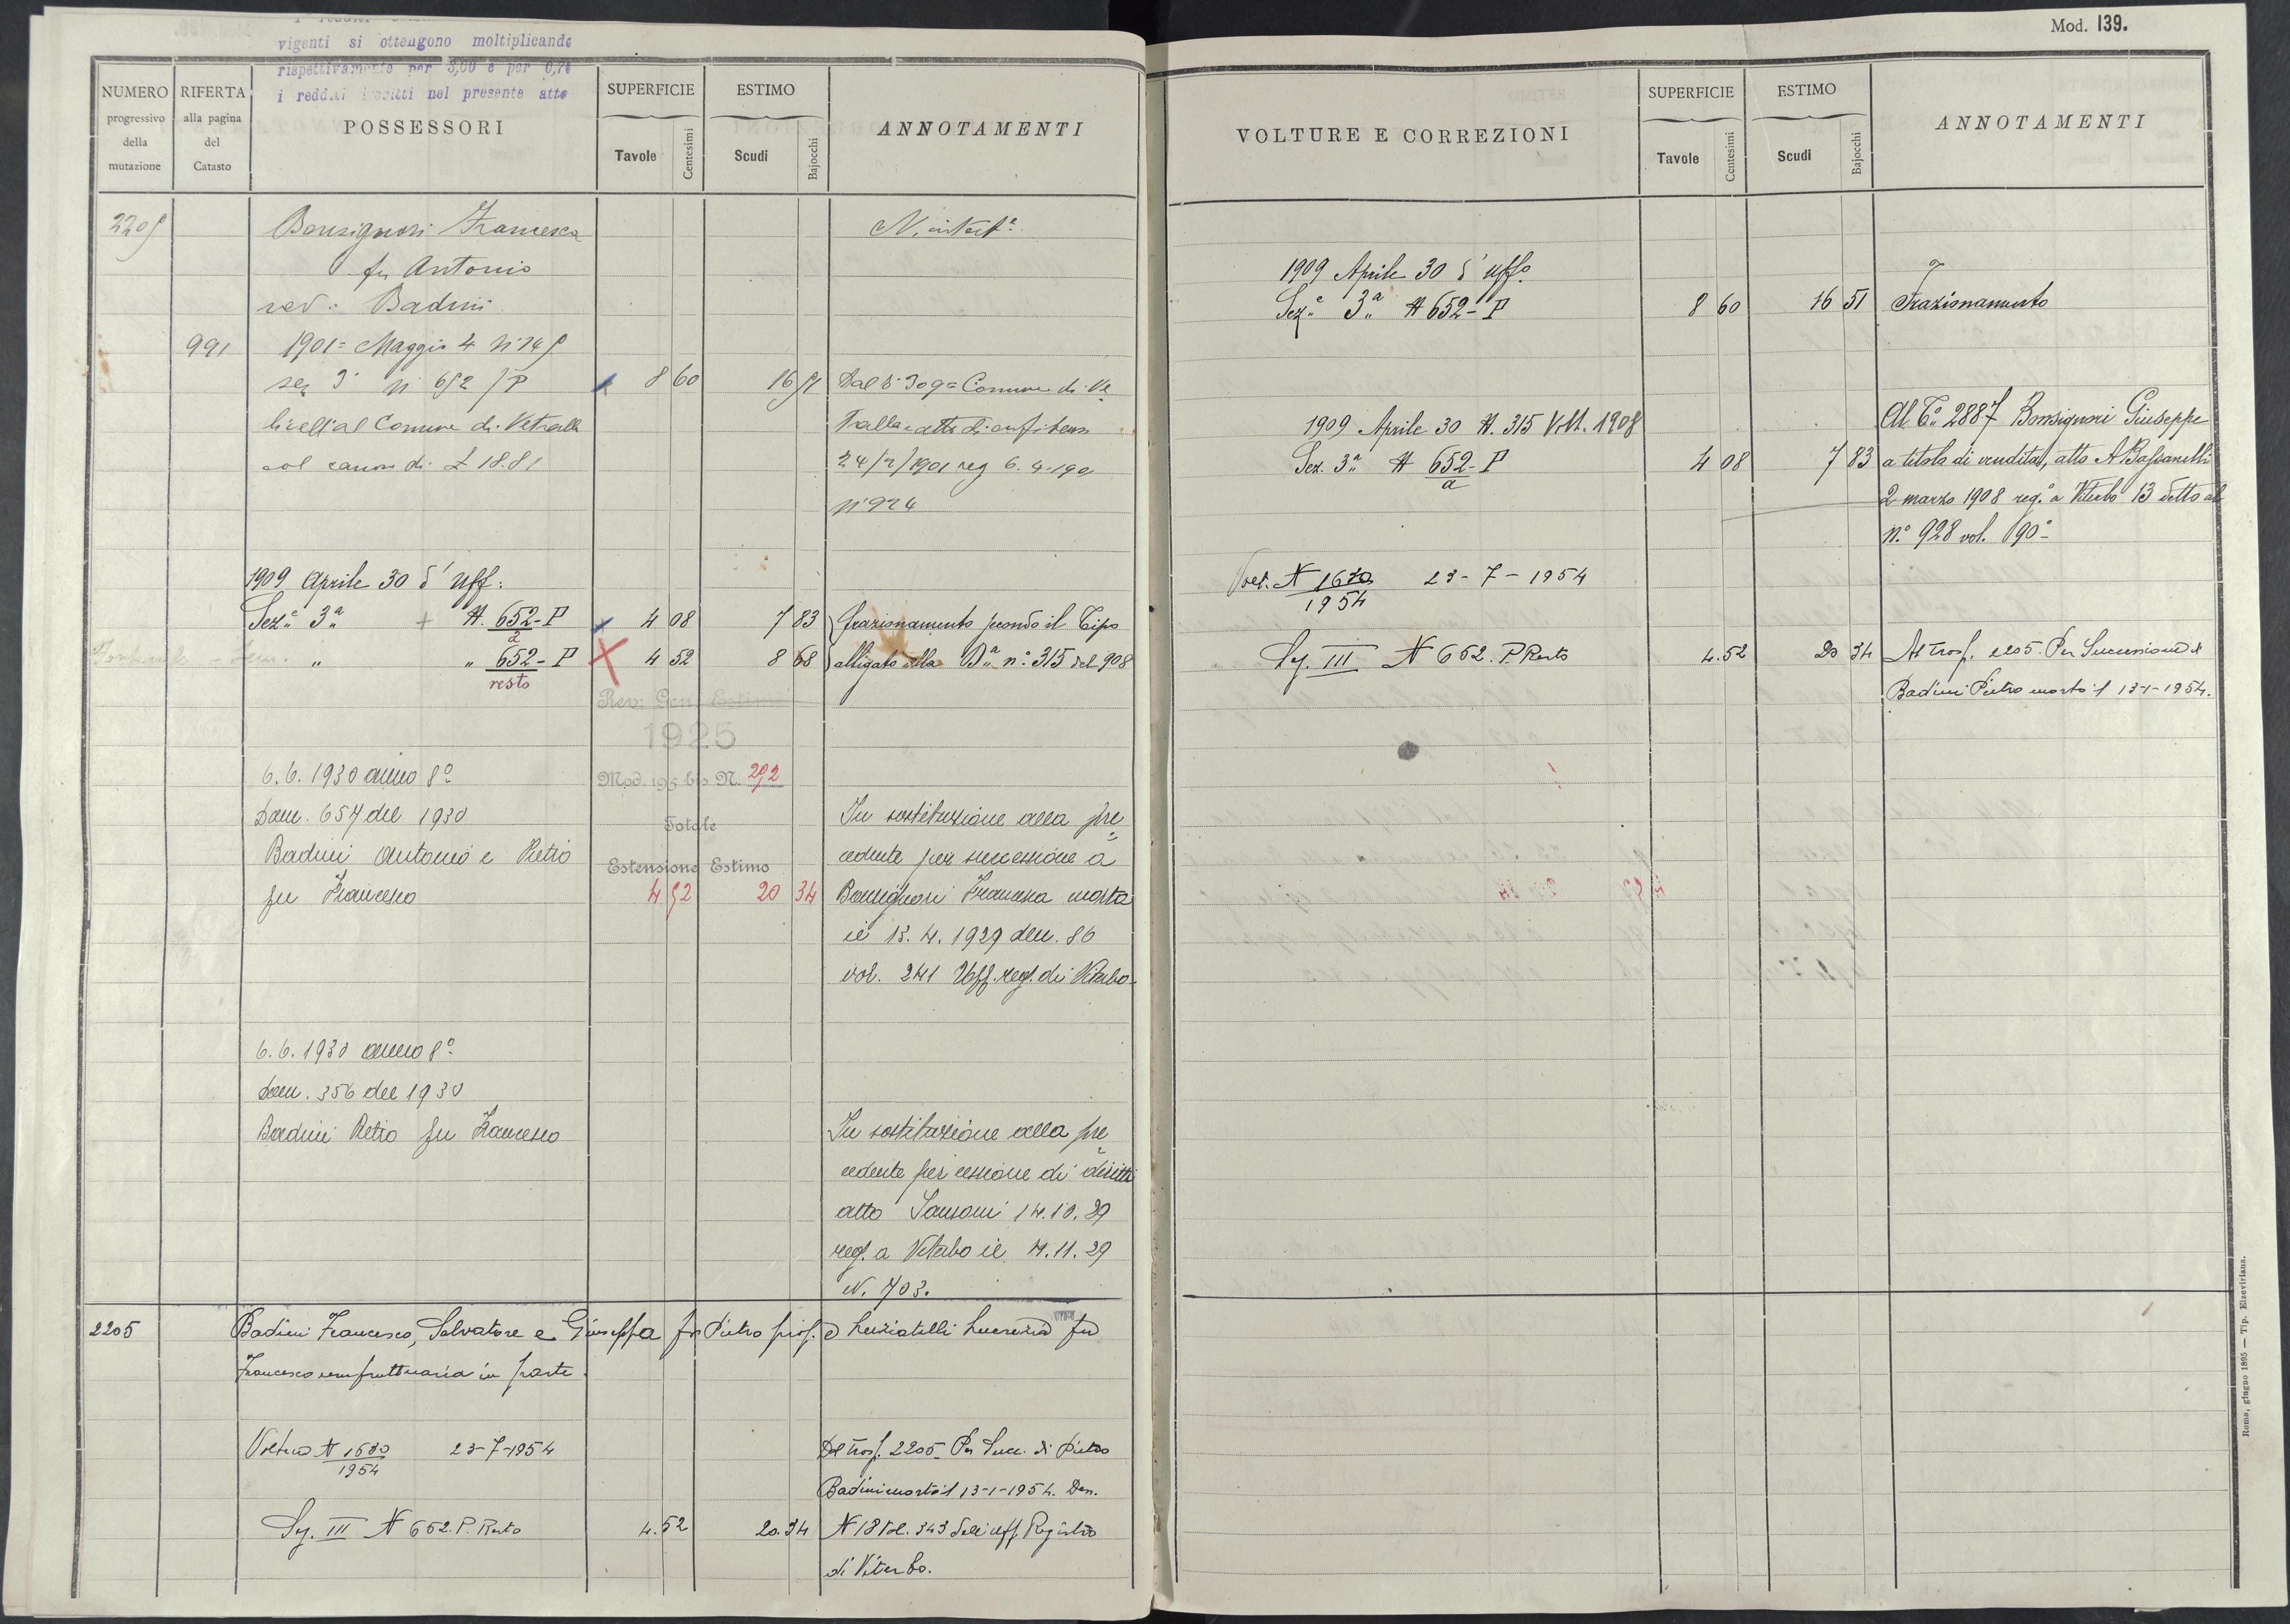 vigenti si ottengono moltiplicando
rispettivamente per 3,60 e per 0,76
i redditi iscritti nel presente atto
NUMERO progressivo della mutazione
RIFERTA alla pagina del Catasto
POSSESSORI
SUPERFICIE
Tavole Centesimi
ESTIMO
Scudi Bajocchi
ANNOTAMENTI
2205 Bonsignori Francesca N. intest.
fu Antonio
ved: Badini
991 1901 = Maggio 4 N 149
sez 3ª N 652/P 8 60 16 51 Dal Comune di Ve
livell. al Comune di Vetralla tralla atto di enfiteusi
col canone di £ 18.81 24/2/1901 reg 6.4.190
N 924
1909 Aprile 30 d'Uff:
Sez.e 3.a + N. 652-P 4 08 7 83 frazionamento secondo il Tipo
a
" " 652-P 4 52 8 68 alligato alla D.a n.° 315 del 908
resto
Rev: Gen. Estimi
1925
6.6.1930 anno 8° Mod. 195 bis N. 292
Dom. 657 del 1930 Totale In sostituzione alla pre
Badini Antonio e Pietro Estensione Estimo cedente per successione a
fu Francesco 4 52 20 34 Bonsignori Francesca morta
il 13.4.1929 den. 86
vol. 241 Uff. reg. di Viterbo-
6.6.1930 anno 8°
Dom. 356 del 1930
Badini Pietro fu Francesco In sostituzione alla pre
cedente per cessione di diritti
atto Sansoni 14.10.29
reg. a Viterbo il 4.11.29
N. 703.
2205 Badini Francesco, Salvatore e Giuseppa fu Pietro prop. e Lucrezia fu
Francesco usufruttuaria in parte.
Voltura N 1630 23-7-1954 Dal trasf. 2205 Per Succ. di Pietro
1954
Badini morto il 13-1-1954. Den.
Sez. III N 652. P. Resto 4.52 20.34 N 18 Vol. 343 dell'uff. Registro
di Viterbo.
Mod. 139.
VOLTURE E CORREZIONI
SUPERFICIE
Tavole Centesimi
ESTIMO
Scudi Bajocchi
ANNOTAMENTI
1909 Aprile 30 d'Uff.
Sez.e 3.a N 652-P 8 60 16 51 Frazionamento
1909 Aprile 30 N. 315 Vol. 1908 Al C.° 2887 Bonsignori Giuseppe
Sez. 3.a N 652-P 4 08 7 83 a titolo di vendita, atto A Bassanelli
a
2 marzo 1908 reg.° a Viterbo 13 detto al
n.° 928 vol. 90.°
Volt. N 1630 23-7-1954
1954
Sez. III N 652. P. Resto 4.52 20 34 Al trasf. 2205. Per Successione di
Badini Pietro morto il 13-1-1954.
Roma, giugno 1895 — Tip. Elzeviriana.